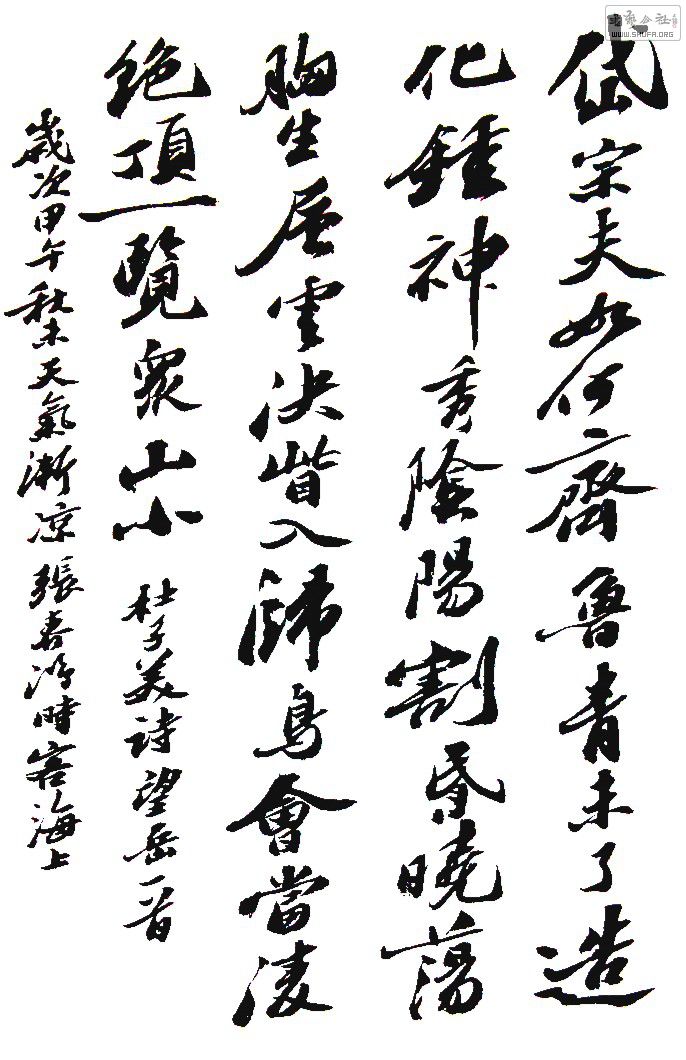 岱宗夫如何齊魯青未了造
化鍾神秀陰陽割昏曉蕩
胸生層雲決眥入歸鳥會當凌
絕頂一覽眾山小 杜子美詩望岳一首
歲次甲午秋末天氣漸涼張春時客海上
書藝公社
WWW.SHUFA.ORG